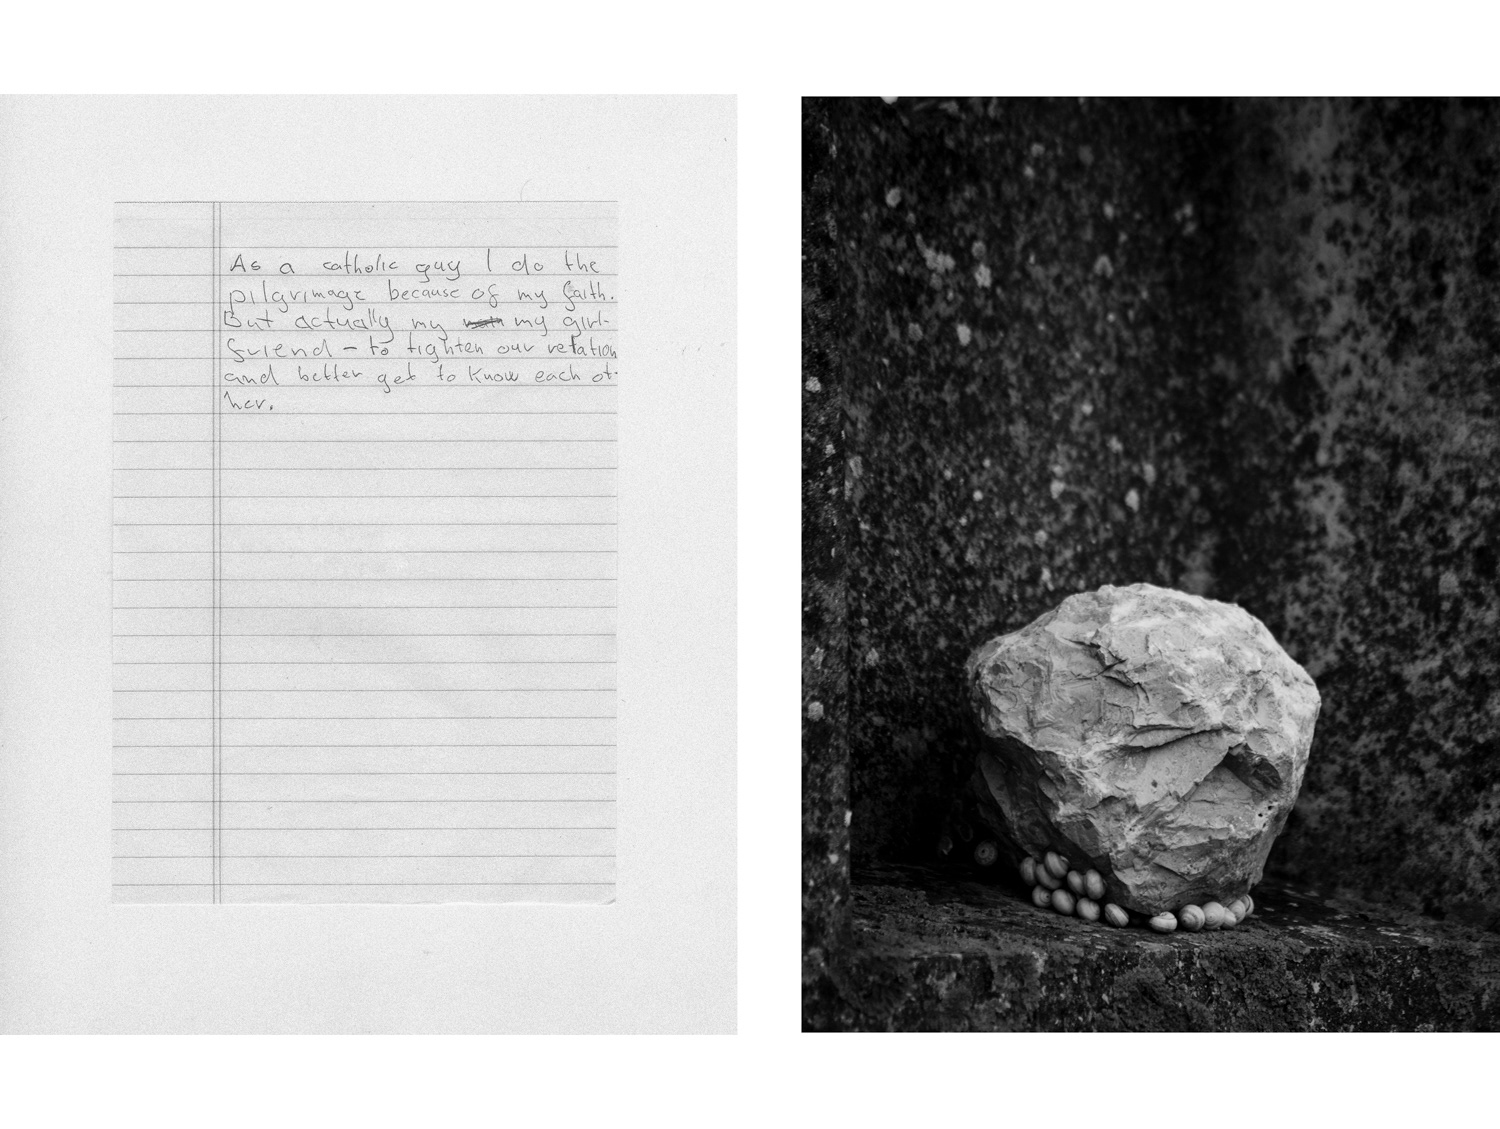 As a catholic guy I do the
pilgrimage because of my faith.
But actually my my girl-
friend – to tighten our relation
and better get to know each ot-
her.